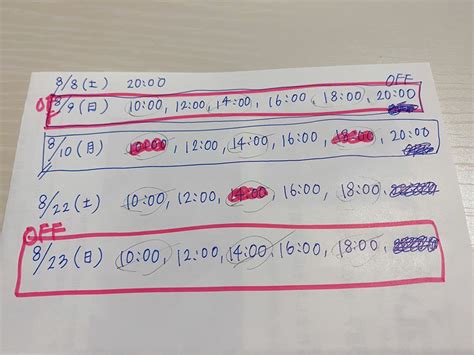 8/8(土) 20:00
OFF
OFF
8/9(日) 10:00, 12:00, 14:00, 16:00, 18:00, 20:00
8/10(月) 10:00, 12:00, 14:00, 16:00, 18:00, 20:00
8/22(土) 10:00, 12:00, 14:00, 16:00, 18:00,
OFF
8/23(日) 10:00, 12:00, 14:00, 16:00, 18:00,